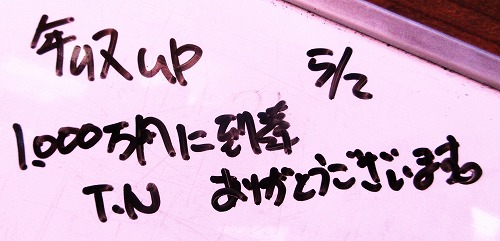 年収up 5/2
1,000万円に到達
T.N ありがとうございます。